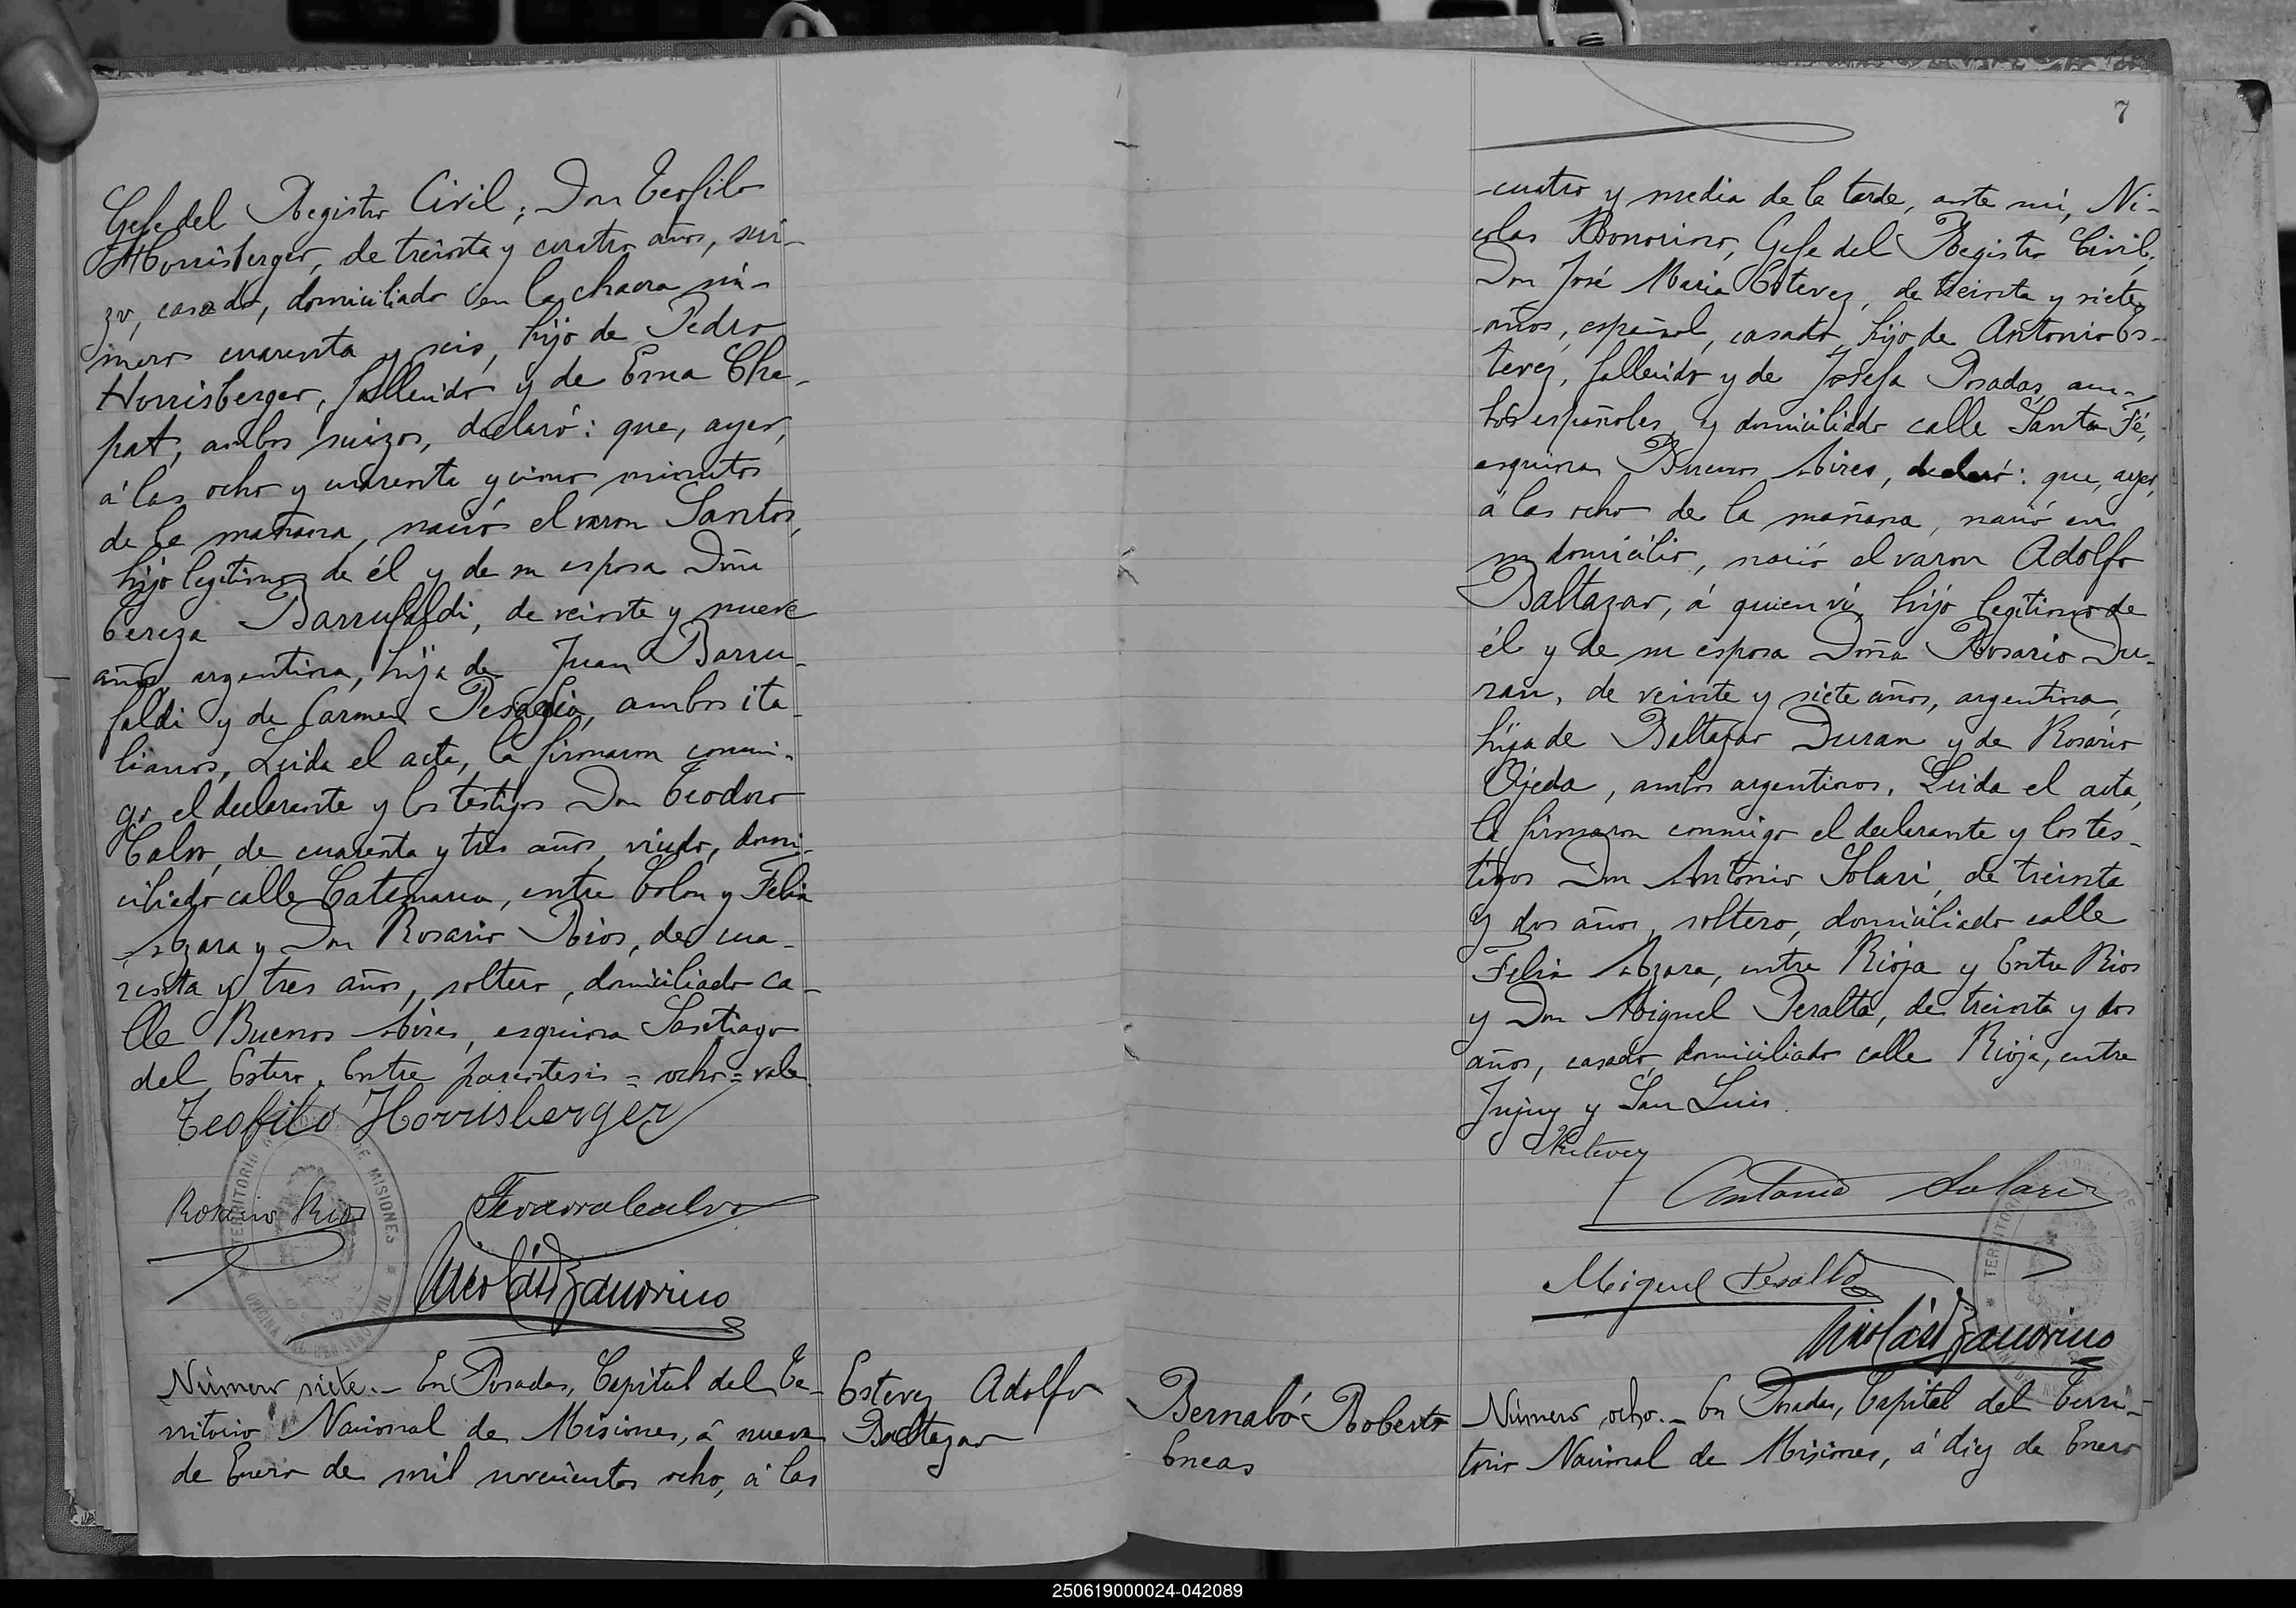 Gefe del Registro Civil; Don Teofilo
Horrisberger, de treinta y cuatro años, sui-
zo, casado, domiciliado en la chacra nú-
mero cuarenta y seis, hijo de Pedro
Horrisberger, fallecido y de Ema Cha-
pat, ambos suizos, declaró: que, ayer,
á las ocho y cuarenta y cinco minutos
de la mañana, nació el varon Santos,
hijo legitimo de él y de su esposa Doña
Tereza Barrufaldi, de veinte y nueve
años, argentina, hija de Juan Barru-
faldi y de Carmen ambos ita-
lianos, Leida el acta, la firmaron conmi-
go el declarante y los testigos Don Teodoro
Calvo, de cuarenta y tres años, viudo, domi-
ciliado calle Catamarca, entre Colon y Felix
Azara y Don Rosario Rios, de cua-
renta y tres años, soltero, domiciliado ca-
lle Buenos Aires, esquina Santiago
del Estero. Entre parentesis = ocho = vale
Teofilo Horrisberger
TERRITORIO DE MISIONES
Rosario Rios
Teodoro Calvo
Nicolás Bonorino
Número siete.- En Posadas, Capital del Te-
rritorio Nacional de Misiones, á nueve
de Enero de mil novecientos ocho, á las
Estevez Adolfo
Baltazar
7
cuatro y media de la tarde, ante mí, Ni-
colas Bonorino, Gefe del Registro Civil;
Don José Maria Estevez, de treinta y siete
años, español, casado, hijo de Antonio Es-
tevez, fallecido y de Josefa Posadas, am-
bos españoles, y domiciliado calle Santa Fé,
esquina Buenos Aires, declaró: que, ayer,
á las ocho de la mañana, nació en
su domicilio, nació el varon Adolfo
Baltazar, á quien ví, hijo legitimo de
él y de su esposa Doña Rosario Du-
ran, de veinte y siete años, argentina,
hija de Baltazar Duran y de Rosario
Ojeda, ambos argentinos. Leida el acta,
la firmaron conmigo el declarante y los tes-
tigos Don Antonio Solari, de treinta
y dos años, soltero, domiciliado calle
Felix Azara, entre Rioja y Entre Rios
y Don Miguel Peralta, de treinta y dos
años, casado, domiciliado calle Rioja, entre
Jujuy y San Luis.
Antonio Solari
TERRITORIO
Miguel Peralta
Nicolás Bonorino
Bernabó Roberto
Eneas
Número ocho.- En Posadas, Capital del Terri-
torio Nacional de Misiones, á diez de Enero
250619000024-042089